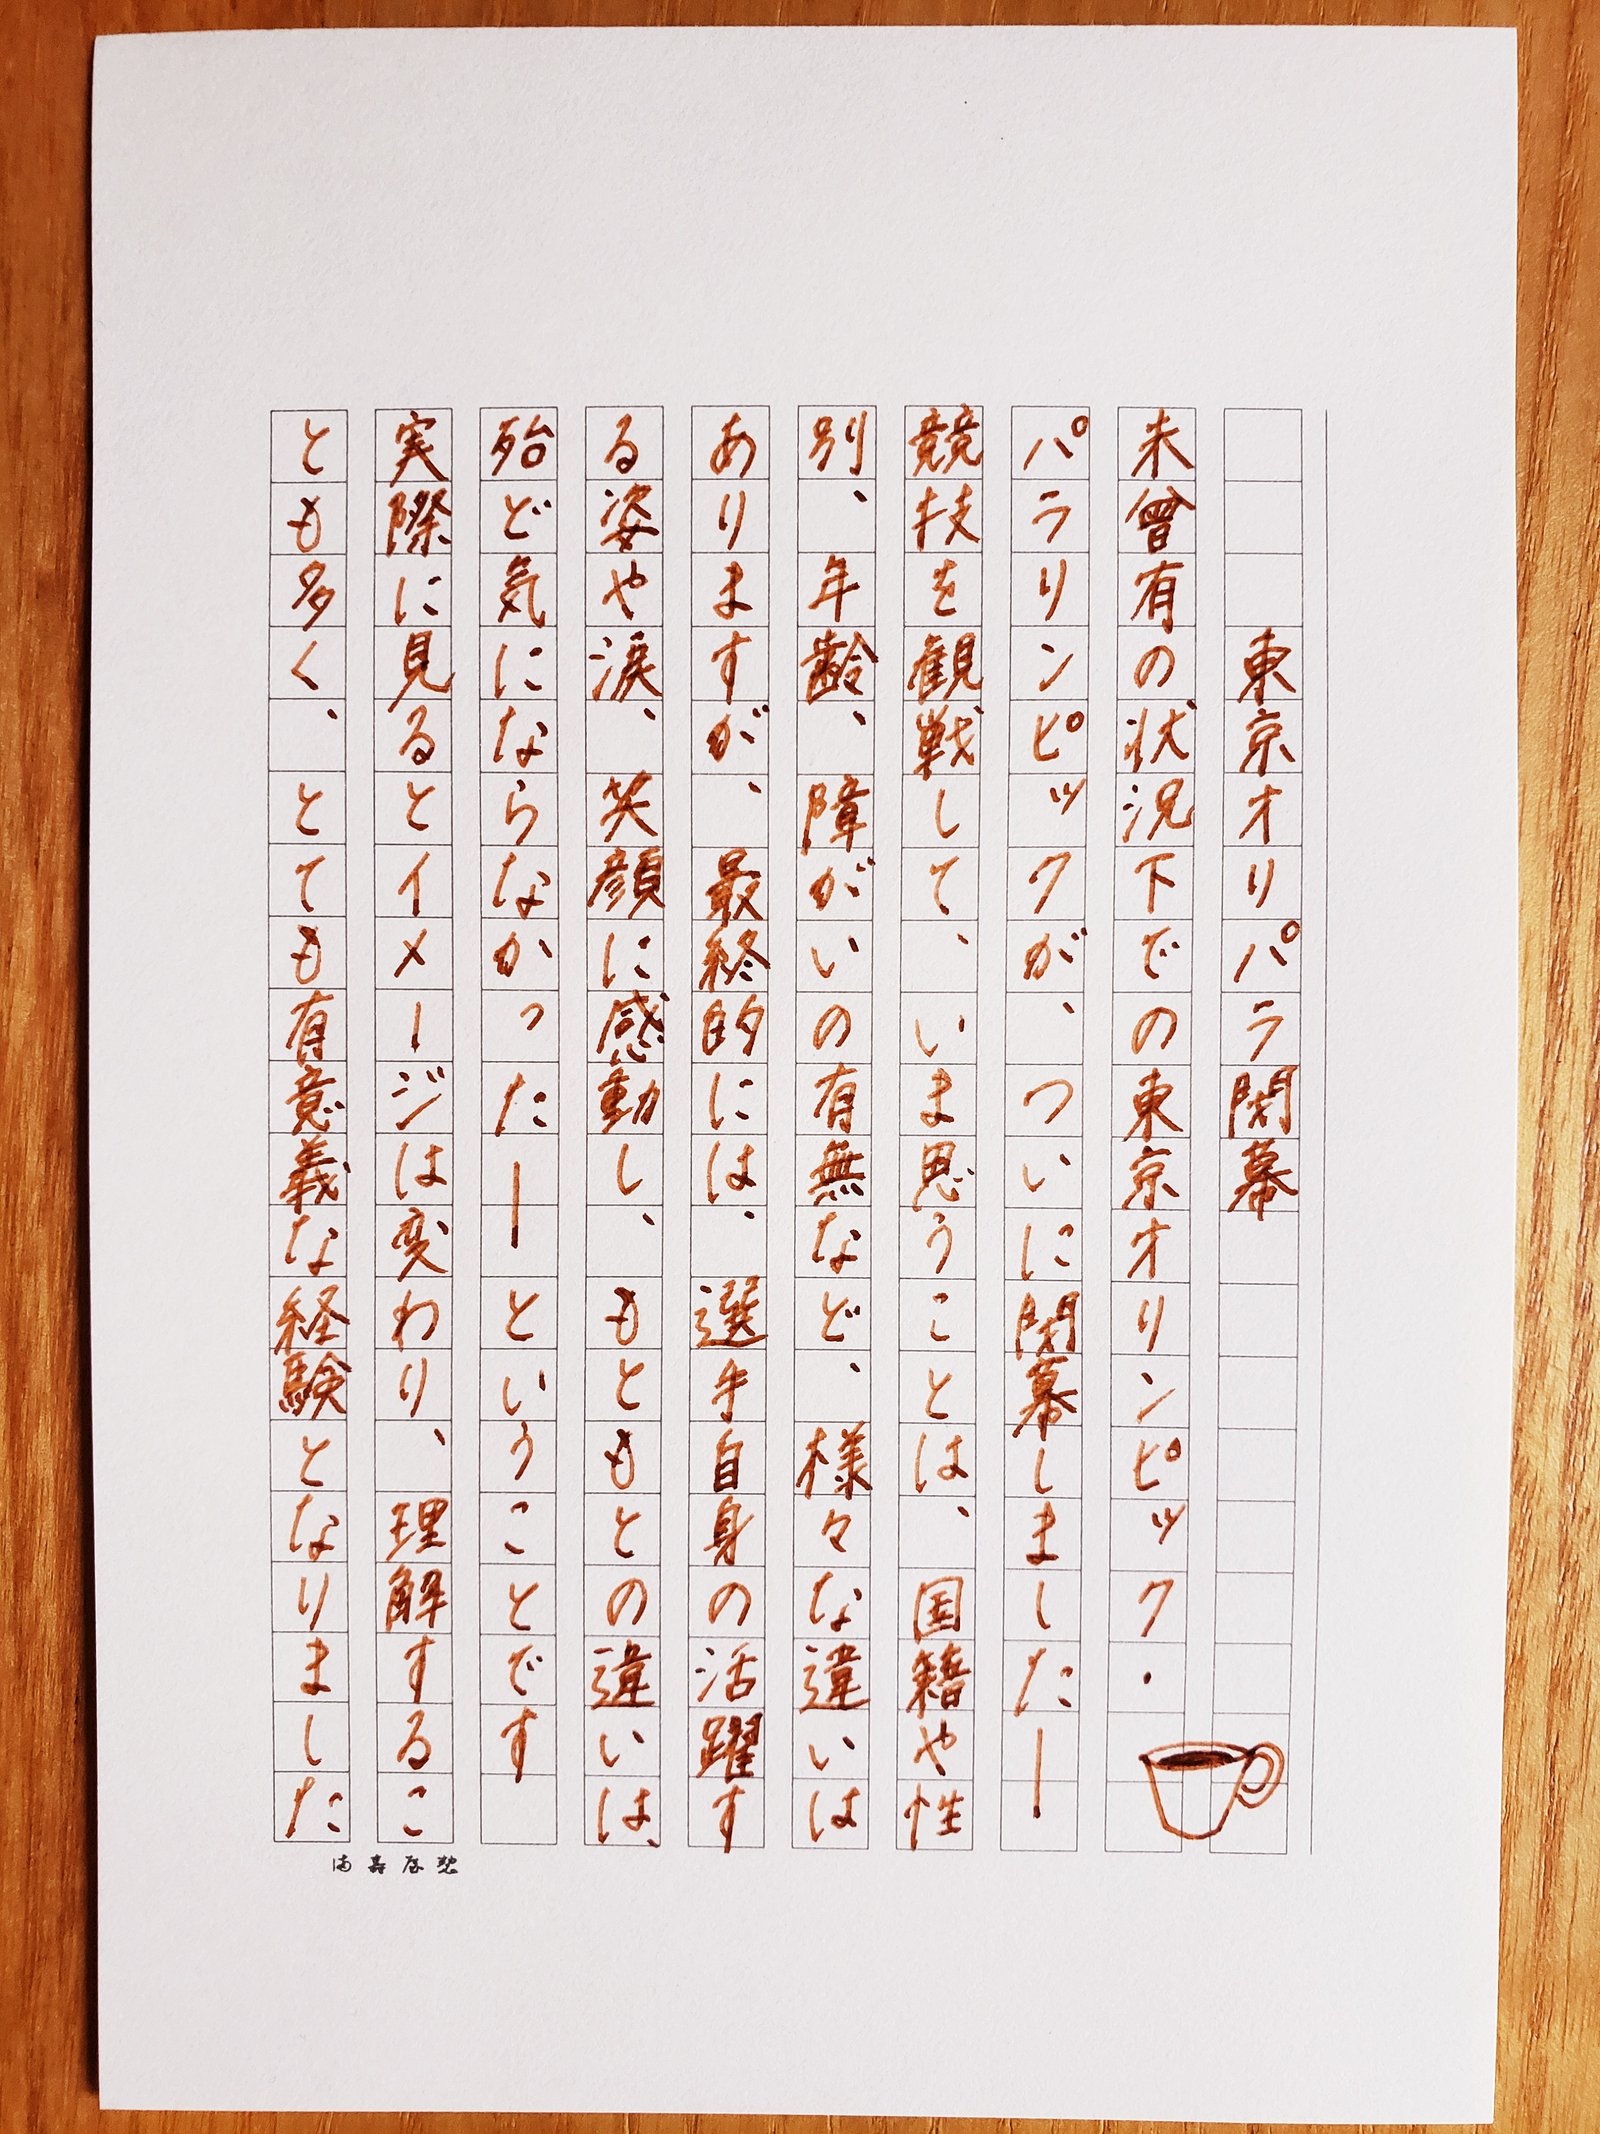 東京オリパラ閉幕
未曾有の状況下での東京オリンピック・
パラリンピックが、ついに閉幕しました―
競技を観戦して、いま思うことは、国籍や性
別、年齢、障がいの有無など、様々な違いは
ありますが、最終的には、選手自身の活躍す
る姿や涙、笑顔に感動し、もともとの違いは、
殆ど気にならなかった―ということです
実際に見るとイメージは変わり、理解するこ
とも多く、とても有意義な経験となりました